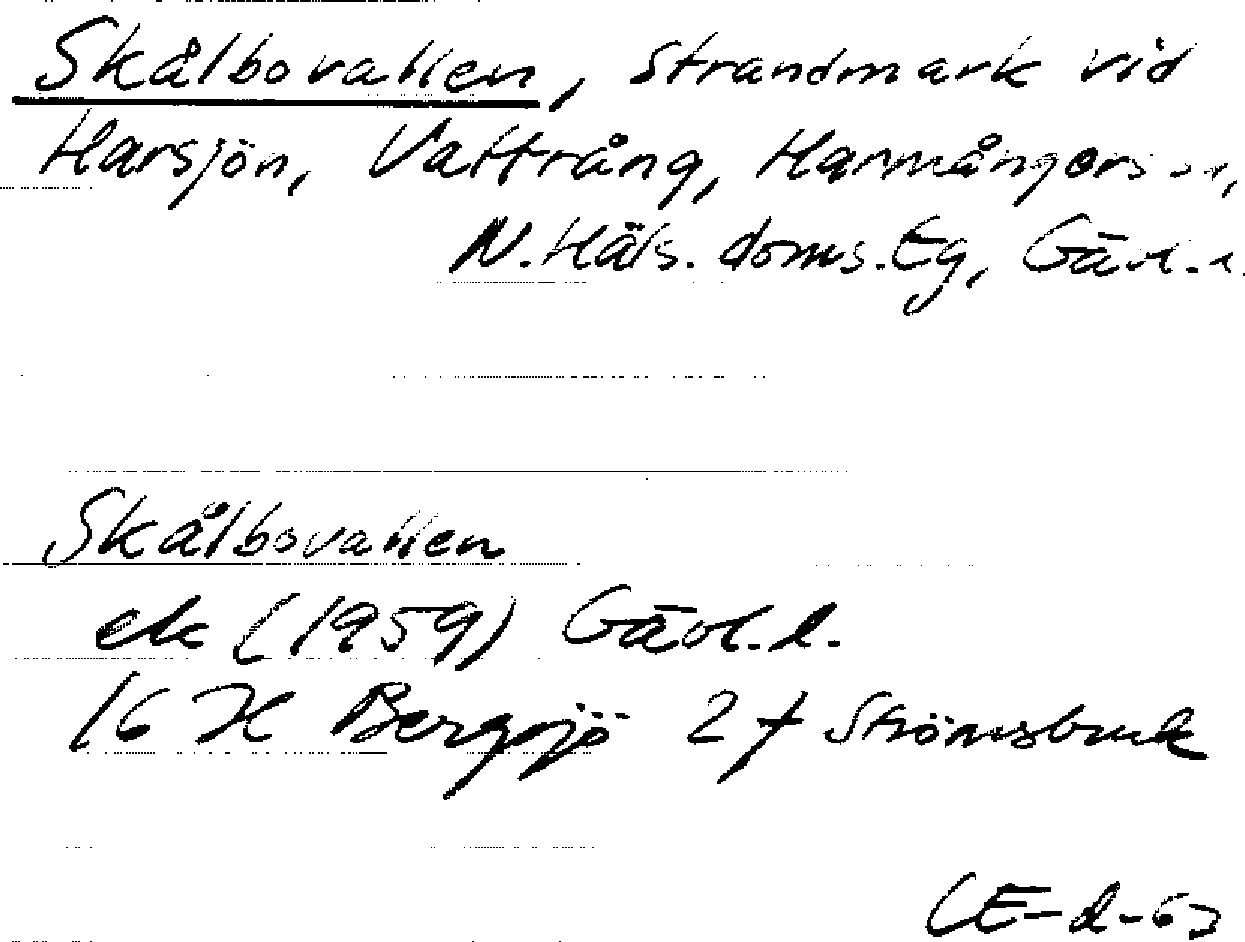 Skålbovallen, strandmark vid
Harsjön, Vattrång, Harmångers sn,
N. Häls. doms. Eg, Gävl. l.
Skålbovallen
ek (1959) Gävl. l.
16 H Bergsjö 2 f Strömsbruk